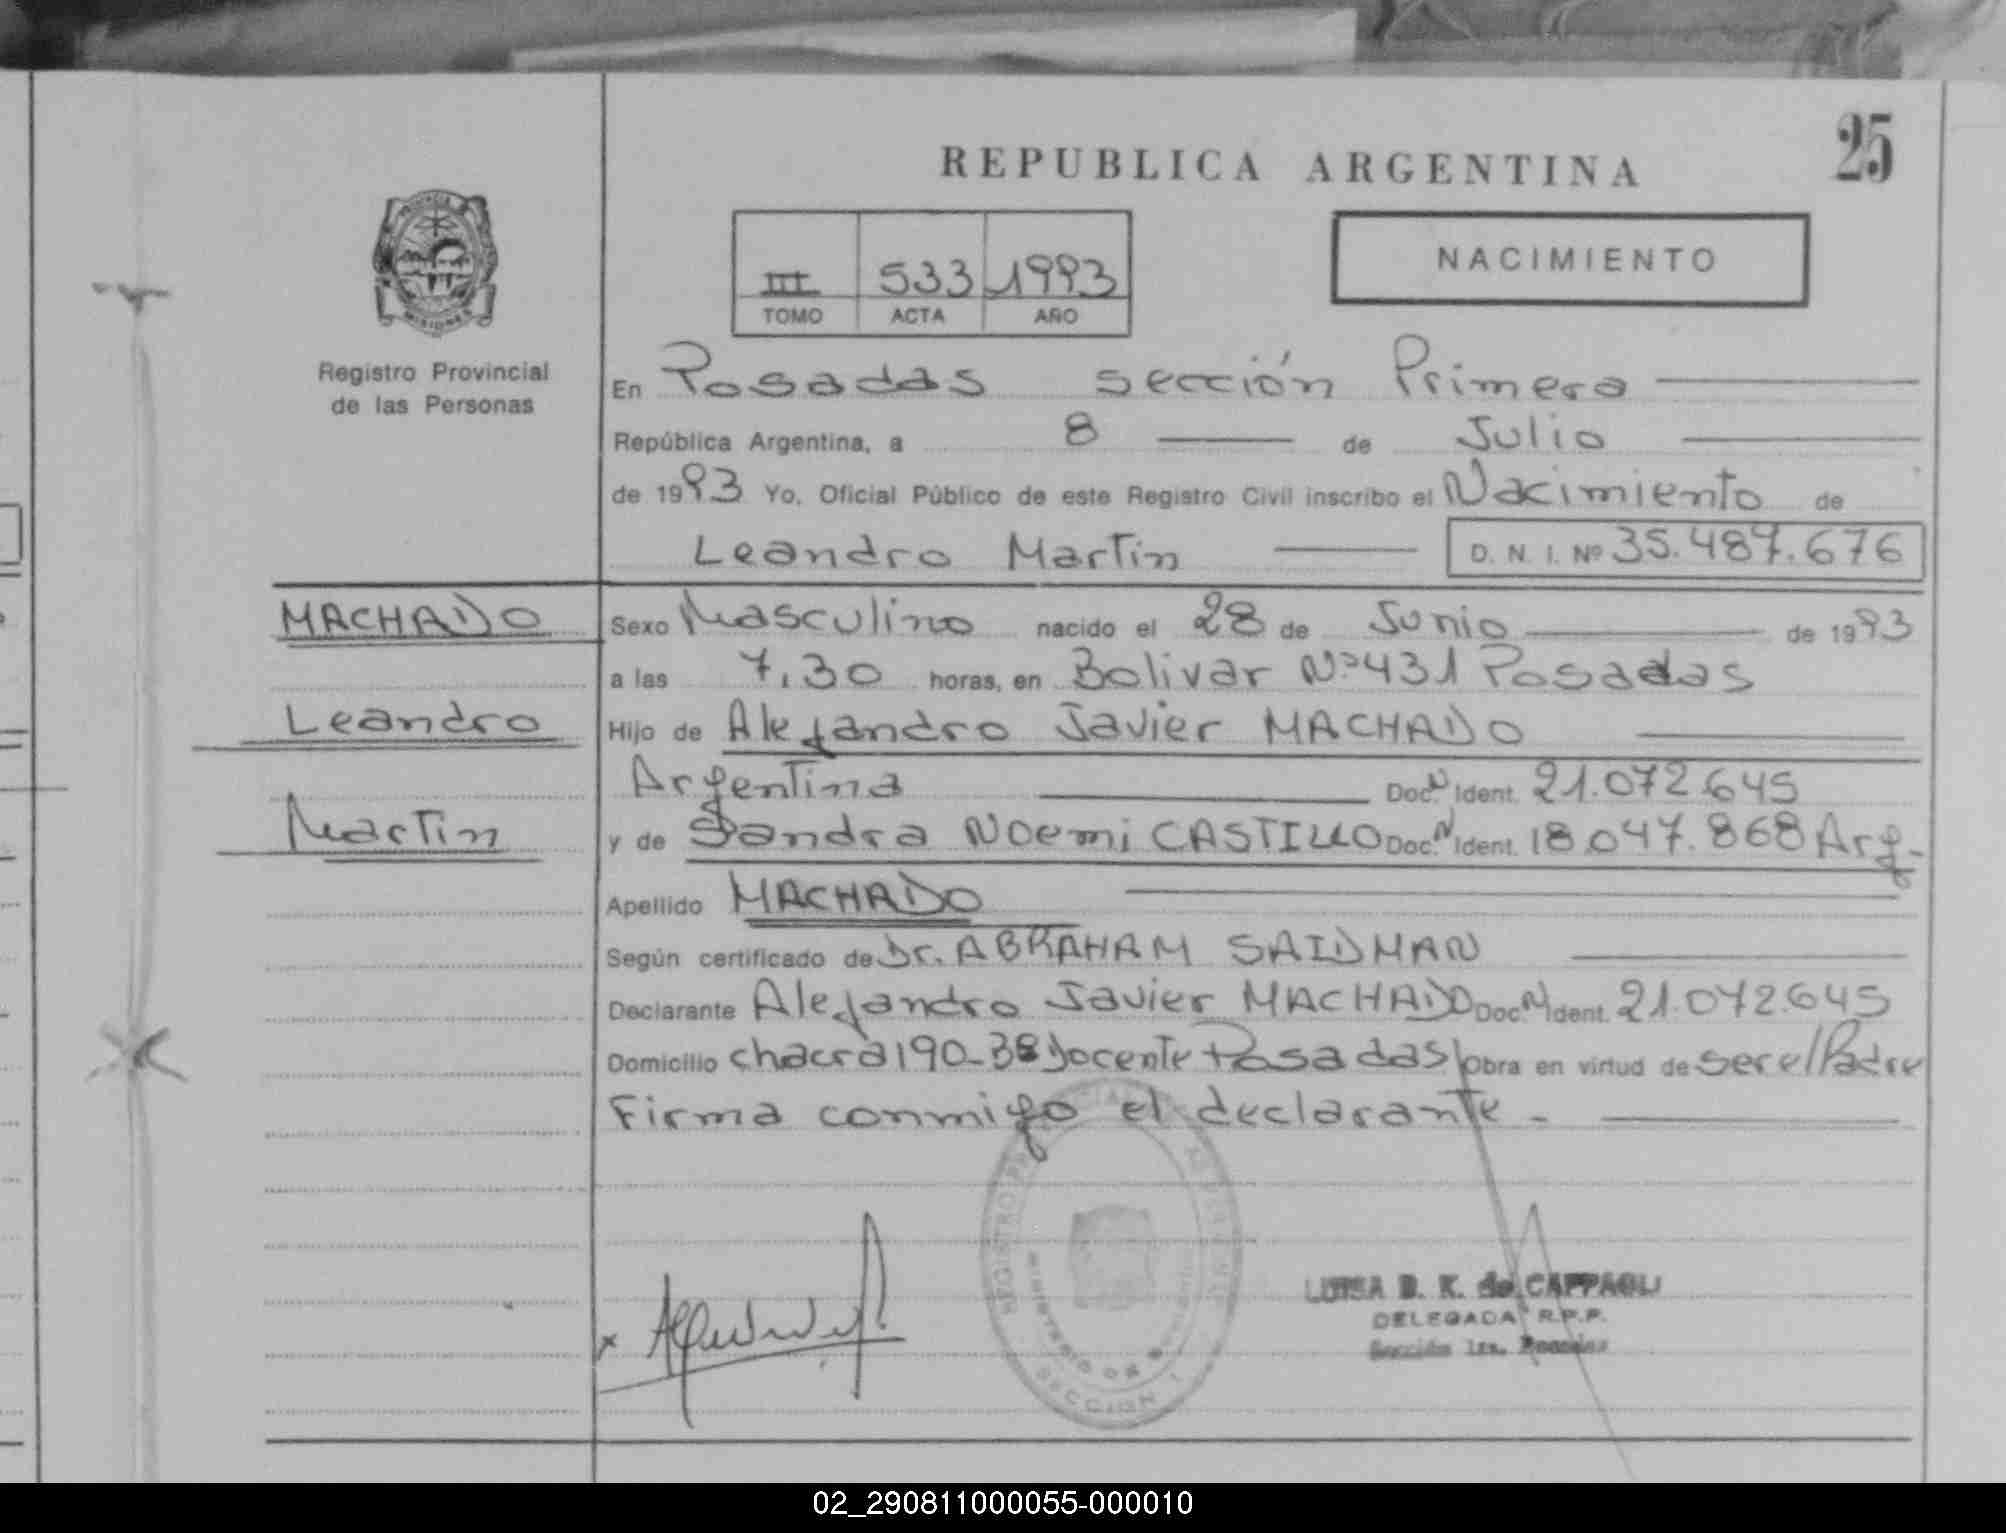 25
REPUBLICA ARGENTINA
NACIMIENTO
III 533 1993
TOMO ACTA AÑO
PROVINCIA DE
MISIONES
Registro Provincial
de las Personas
En Posadas sección Primera
República Argentina, a 8 de Julio
de 1993 Yo, Oficial Público de este Registro Civil inscribo el Nacimiento de
Leandro Martin D. N. I. Nº 35.487.676
MACHADO
Leandro
Martin
Sexo Masculino nacido el 28 de Junio de 1993
a las 7,30 horas, en Bolivar Nº 431 Posadas
Hijo de Alejandro Javier MACHADO
Argentina Doc. N Ident. 21.072.645
y de Sandra Noemi CASTILLO Doc. N Ident. 18.047.868 Arg.
Apellido MACHADO
Según certificado de Dr. ABRAHAM SAIDMAN
Declarante Alejandro Javier MACHADO Doc. N Ident. 21.072.645
Domicilio chacra 190-38 Docente Posadas Obra en virtud de ser el Padre
Firma conmigo el declarante.
REGISTRO
MINISTERIO DE
SECCION 1
LUISA B. K. de CAPPAGLI
DELEGADA R.P.P.
Sección 1ra. Posadas
02_290811000055-000010